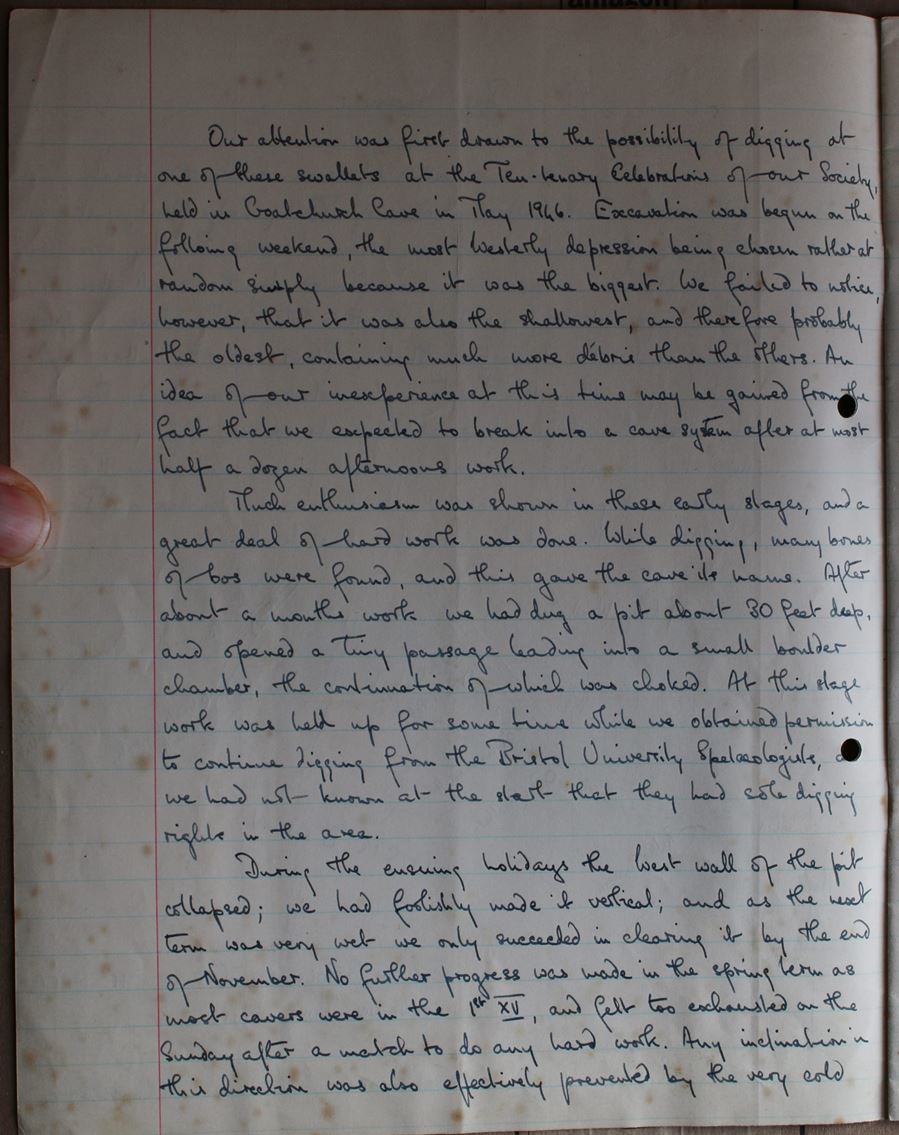 amazon
Our attention was first drawn to the possibility of digging at
one of these swallets at the Ten-tenary Celebrations of our Society,
held in Goatchurch Cave in May 1946. Excavation was begun on the
following weekend, the most Westerly depression being chosen rather at
random simply because it was the biggest. We failed to notice,
however, that it was also the shallowest, and therefore probably
the oldest, containing much more débris than the others. An
idea of our inexperience at this time may be gained from the
fact that we expected to break into a cave system after at most
half a dozen afternoons work.
Much enthusiasm was shown in these early stages, and a
great deal of hard work was done. While digging, many bones
of bos were found, and this gave the cave its name. After
about a months work we had dug a pit about 30 feet deep,
and opened a tiny passage leading into a small boulder
chamber, the continuation of which was choked. At this stage
work was held up for some time while we obtained permission
to continue digging from the Bristol University Spelæologists,
we had not known at the start that they had sole digging
rights in the area.
During the ensuing holidays the West wall of the pit
collapsed; we had foolishly made it vertical; and as the next
term was very wet we only succeeded in clearing it by the end
of November. No further progress was made in the spring term as
most cavers were in the 1st XV, and felt too exhausted on the
Sunday after a match to do any hard work. Any inclination in
this direction was also effectively prevented by the very cold